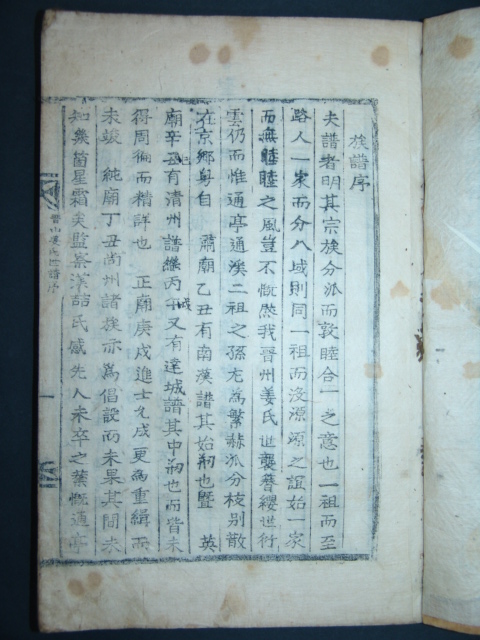 族譜序
夫譜者明其宗族分派而敦睦合一之意也一祖而至
路人一家而分八域則同一祖而没源源之誼始一家
而無睦睦之風豈不慨然我晉州姜氏世襲簪纓世衍
雲仍而惟通亭通溪二祖之孫尤為繁赫派分枝別散
在京鄉粤自 肅廟乙丑有南漢譜其始刱也曁 英
廟辛丑有清州譜継丙午又有達城譜其中刱也而皆未
得周徧而精詳也 正廟庚戌進士允成更為重緝而
未竣 純廟丁丑尚州諸族亦為倡設而未果其間未
知幾箇星霜矣監察漢喆氏感先人未卒之業慨通亭
晉山姜氏世譜序
一